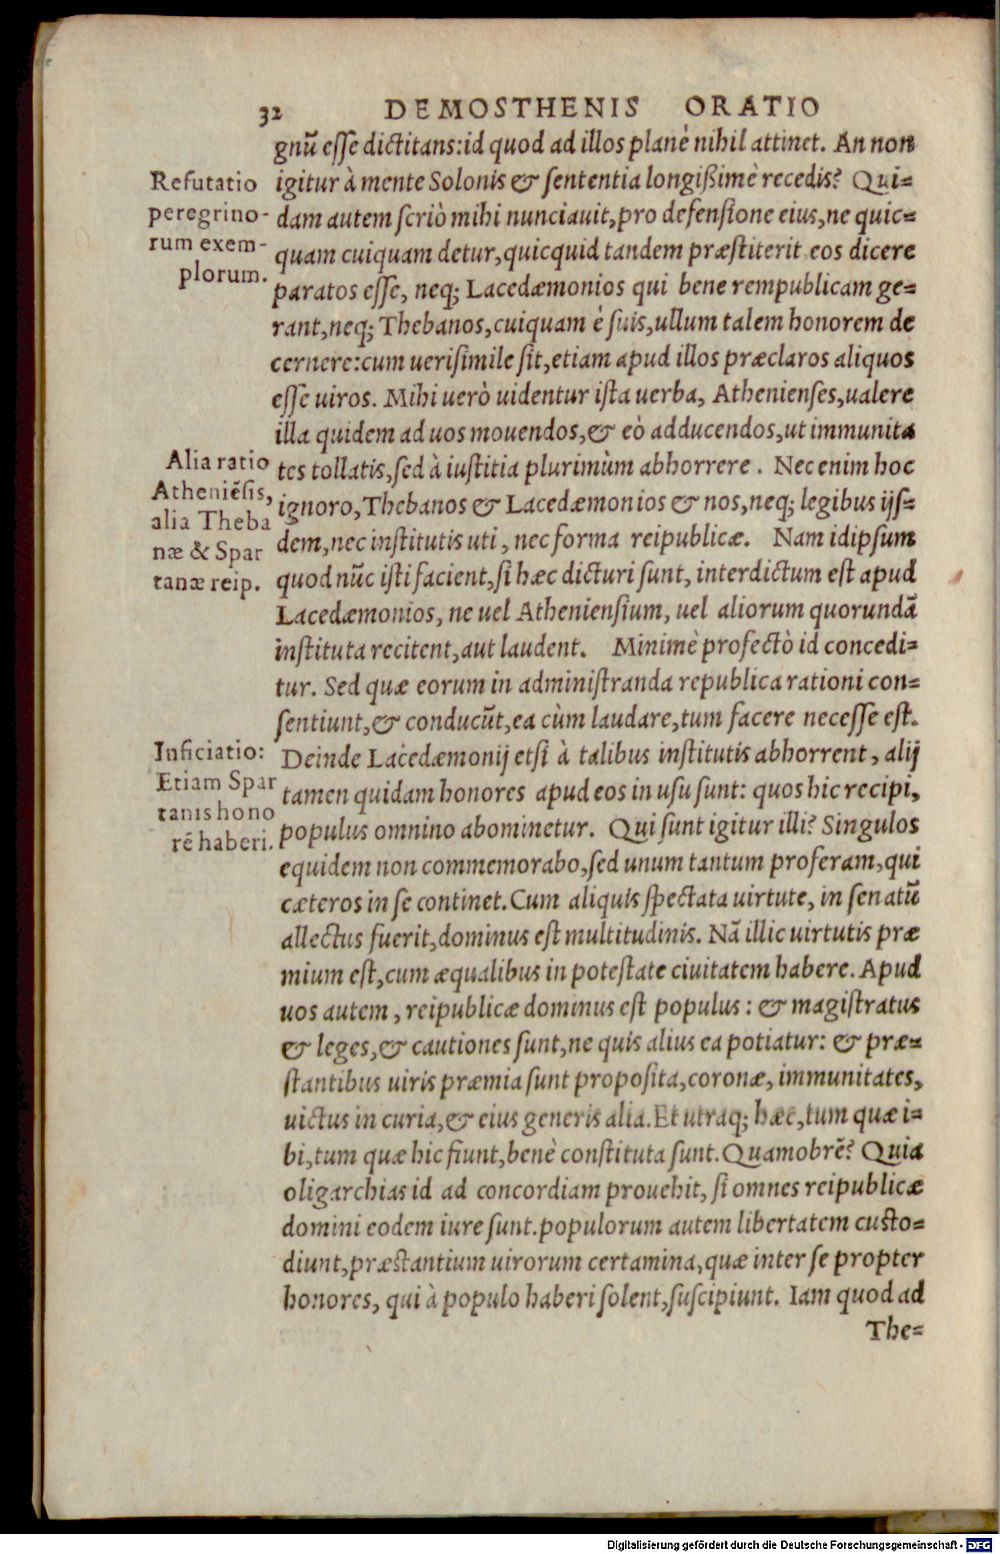 32 DEMOSTHENIS ORATIO
gnũ eſſe dictitans:id quod ad illos planè nihil attinet. An non
igitur à mente Solonis & ſententia longißimè recedis? Qui=
dam autem ſcriò mihi nunciauit,pro defenſione eius,ne quic=
quam cuiquam detur,quicquid tandem præſtiterit eos dicere
paratos eſſe, neq; Lacedæmonios qui bene rempublicam ge=
rant,neq; Thebanos,cuiquam è ſuis,ullum talem honorem de
cernere:cum ueriſimile ſit,etiam apud illos præclaros aliquos
eſſe uiros. Mihi uerò uidentur iſta uerba, Athenienſes,ualere
illa quidem ad uos mouendos,& eò adducendos,ut immunita
tes tollatis,ſed à iuſtitia plurimùm abhorrere. Nec enim hoc
ignoro,Thebanos & Lacedæmonios & nos,neq; legibus ijſ=
dem,nec inſtitutis uti, nec forma reipublicæ. Nam idipſum
quod nũc iſti facient,ſi hæc dicturi ſunt, interdictum eſt apud
Lacedæmonios, ne uel Athenienſium, uel aliorum quorundã
inſtituta recitent,aut laudent. Minimè profectò id concedi=
tur. Sed quæ eorum in adminiſtranda republica rationi con=
ſentiunt,& conducũt,ea cùm laudare,tum facere neceſſe eſt.
Deinde Lacedæmonij etſi à talibus inſtitutis abhorrent, alij
tamen quidam honores apud eos in uſu ſunt: quos hic recipi,
populus omnino abominetur. Qui ſunt igitur illi? Singulos
equidem non commemorabo,ſed unum tantum proferam,qui
cæteros in ſe continet. Cum aliquis ſpectata uirtute, in ſenatũ
allectus fuerit,dominus eſt multitudinis. Nã illic uirtutis præ
mium eſt,cum æqualibus in poteſtate ciuitatem habere. Apud
uos autem, reipublicæ dominus eſt populus: & magiſtratus
& leges,& cautiones ſunt,ne quis alius ea potiatur: & præ=
ſtantibus uiris præmia ſunt propoſita,coronæ, immunitates,
uictus in curia,& eius generis alia. Et utraq; hæc,tum quæ i=
bi,tum quæ hic fiunt,benè conſtituta ſunt. Quamobrẽ? Quia
oligarchias id ad concordiam prouehit, ſi omnes reipublicæ
domini eodem iure ſunt.populorum autem libertatem cuſto=
diunt,præſtantium uirorum certamina,quæ inter ſe propter
honores, qui à populo haberi ſolent,ſuſcipiunt. Iam quod ad
The=
Refutatio
peregrino-
rum exem-
plorum.
Alia ratio
Atheniẽſis,
alia Theba
næ & Spar
tanæ reip.
Inficiatio:
Etiam Spar
tanis hono
rẽ haberi.
Digitalisierung gefördert durch die Deutsche Forschungsgemeinschaft - DFG